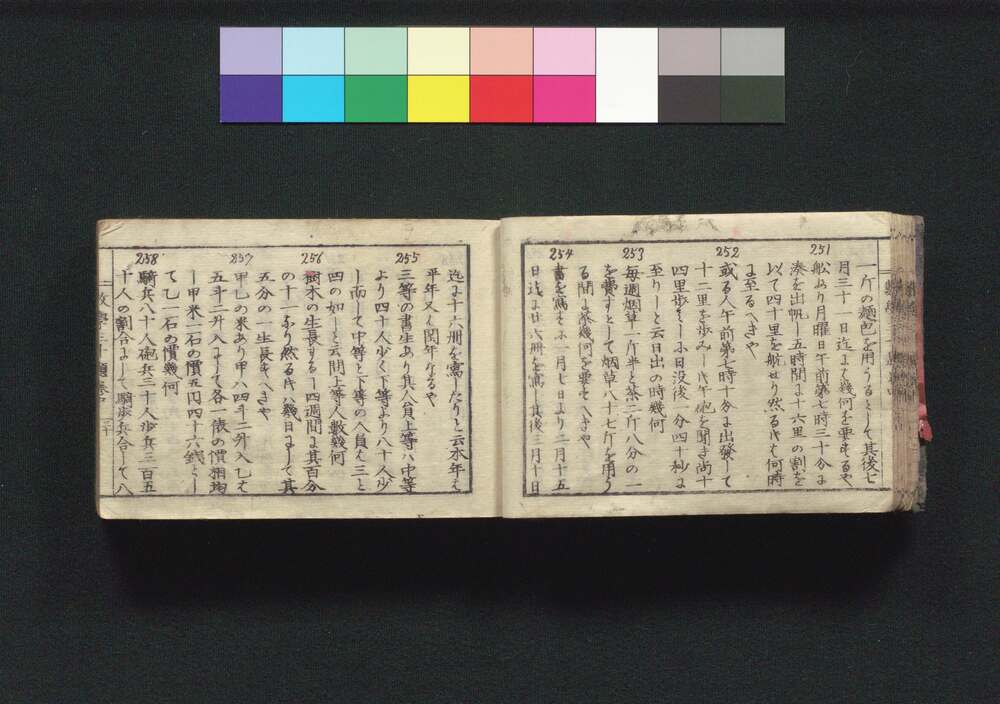 一斤の麺包を用うるとして其後七
月三十一日迄に幾何を要するや
251
船あり月曜日午前第七時三十分に
湊を出帆し五時間に十六里の割を
以て四十里を航せり然るときは何時
に至るへきや
252
或る人午前第七時十分に出發して
十二里を歩み
四里歩
至りしと云日出の時幾何
253
毎週烟草一斤半と茶二斤八分の一
を費すとして烟草八十七斤を用う
る間に茶幾何を要すへきや
254
書を寫すに一月七日より二月十五
日迄に廿六冊を寫し其後三月十日
迄に十六冊を寫したりと云本年は
平年又は閏年なるや
255
三等の書生あり其人員上等は中等
より四十人少く下等より八十人少
し而して中等と下等の人員は三と
四の如しと云問上等人數幾何
256
樹木の生長する一四週間に其百分
の十一なり然るときは幾日にして其
五分の一生長すへきや
257
甲乙の米あり甲は四斗二升入乙は
五斗二升入にして各一俵の價相均
し甲米一石の價五円四十六錢
て乙一石の價幾何
258
騎兵八十人砲兵三十人歩兵三百五
十人の割合にして騎歩兵合して八